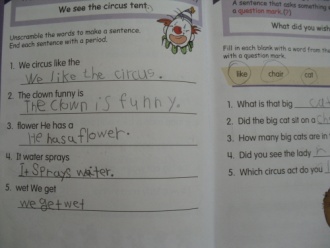 We see the circus tent
Unscramble the words to make a sentence.
End each sentence with a period.
1. We circus like the
We like the circus.
2. The clown funny is
The clown is funny.
3. flower He has a
He has a flower.
4. It water sprays
It sprays water.
5. wet We get
we get wet
A sentence that asks something
a question mark.(?)
What did you wish
Fill in each blank with a word from the
with a question mark.
like chair cat
1. What is that big cat
2. Did the big cat sit on a
3. How many big cats are in
4. Did you see the lady
5. Which circus act do you